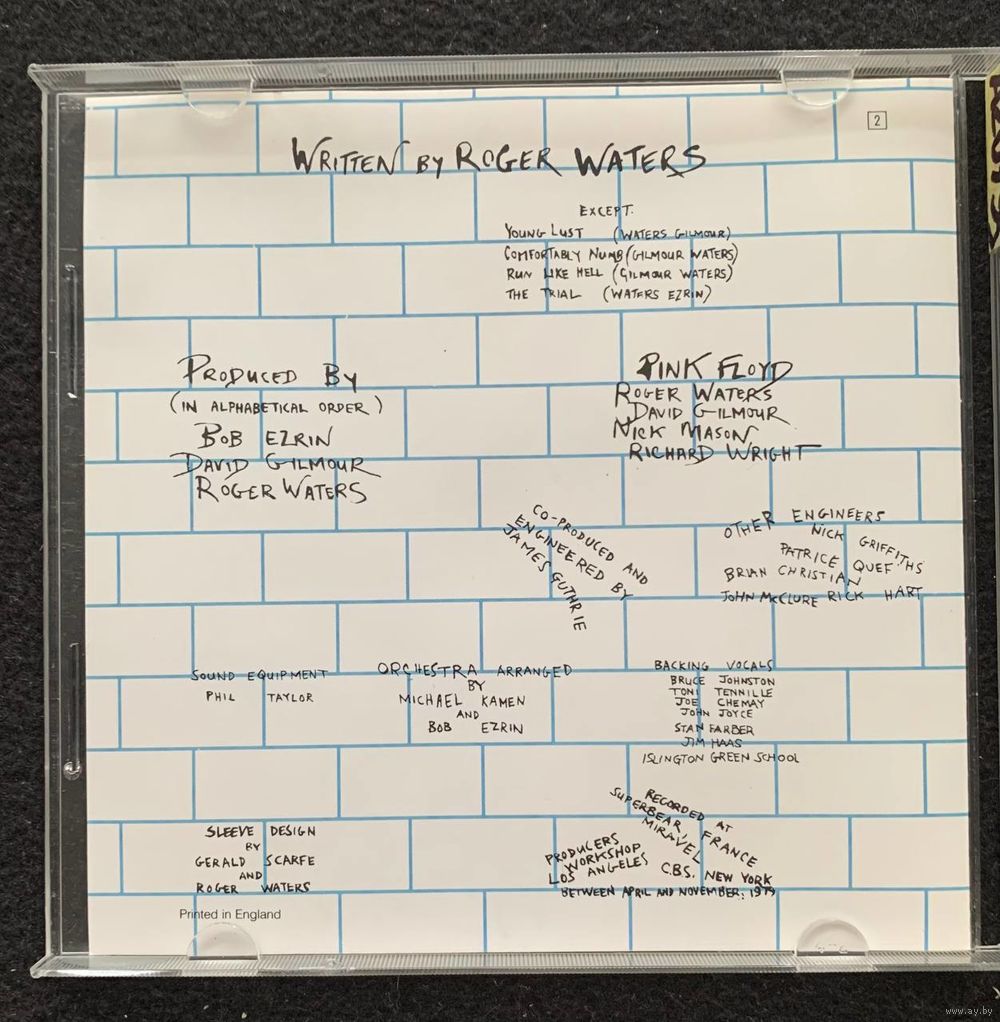 2
WRITTEN BY ROGER WATERS
EXCEPT:
YOUNG LUST (WATERS GILMOUR)
COMFORTABLY NUMB (GILMOUR WATERS)
RUN LIKE HELL (GILMOUR WATERS)
THE TRIAL (WATERS EZRIN)
PRODUCED BY
(IN ALPHABETICAL ORDER)
BOB EZRIN
DAVID GILMOUR
ROGER WATERS
PINK FLOYD
ROGER WATERS
DAVID GILMOUR
NICK MASON
RICHARD WRIGHT
CO-PRODUCED AND
ENGINEERED BY
JAMES GUTHRIE
OTHER ENGINEERS
NICK GRIFFITHS
PATRICE QUEF
BRIAN CHRISTIAN
JOHN McCLURE RICK HART
SOUND EQUIPMENT
PHIL TAYLOR
ORCHESTRA ARRANGED
BY
MICHAEL KAMEN
AND
BOB EZRIN
BACKING VOCALS
BRUCE JOHNSTON
TONI TENNILLE
JOE CHEMAY
JOHN JOYCE
STAN FARBER
JIM HAAS
ISLINGTON GREEN SCHOOL
SLEEVE DESIGN
BY
GERALD SCARFE
AND
ROGER WATERS
RECORDED AT
SUPERBEAR, FRANCE
MIRAVEL
PRODUCERS
WORKSHOP
LOS ANGELES
C.B.S. NEW YORK
BETWEEN APRIL AND NOVEMBER: 1979
Printed in England
www.ay.by